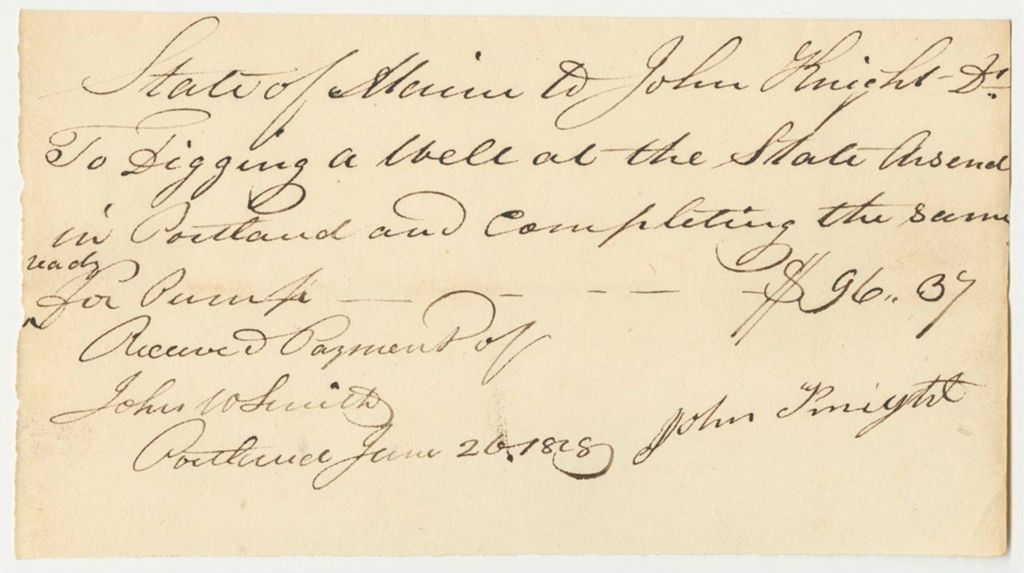 State of Maine to John Knight Dr.
To Digging a Well at the State Arsenal
in Portland and Completing the same
ready
for Pump — — — — $96.. 37
Received Payment of
John W Smith
Portland June 26. 1828
John Knight